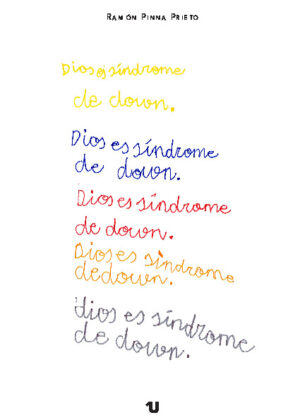 RAMÓN PINNA PRIETO
Dios es síndrome
de down.
Dios es síndrome
de down.
Dios es síndrome
de down.
Dios es síndrome
de down.
dios es síndrome
de down.
U